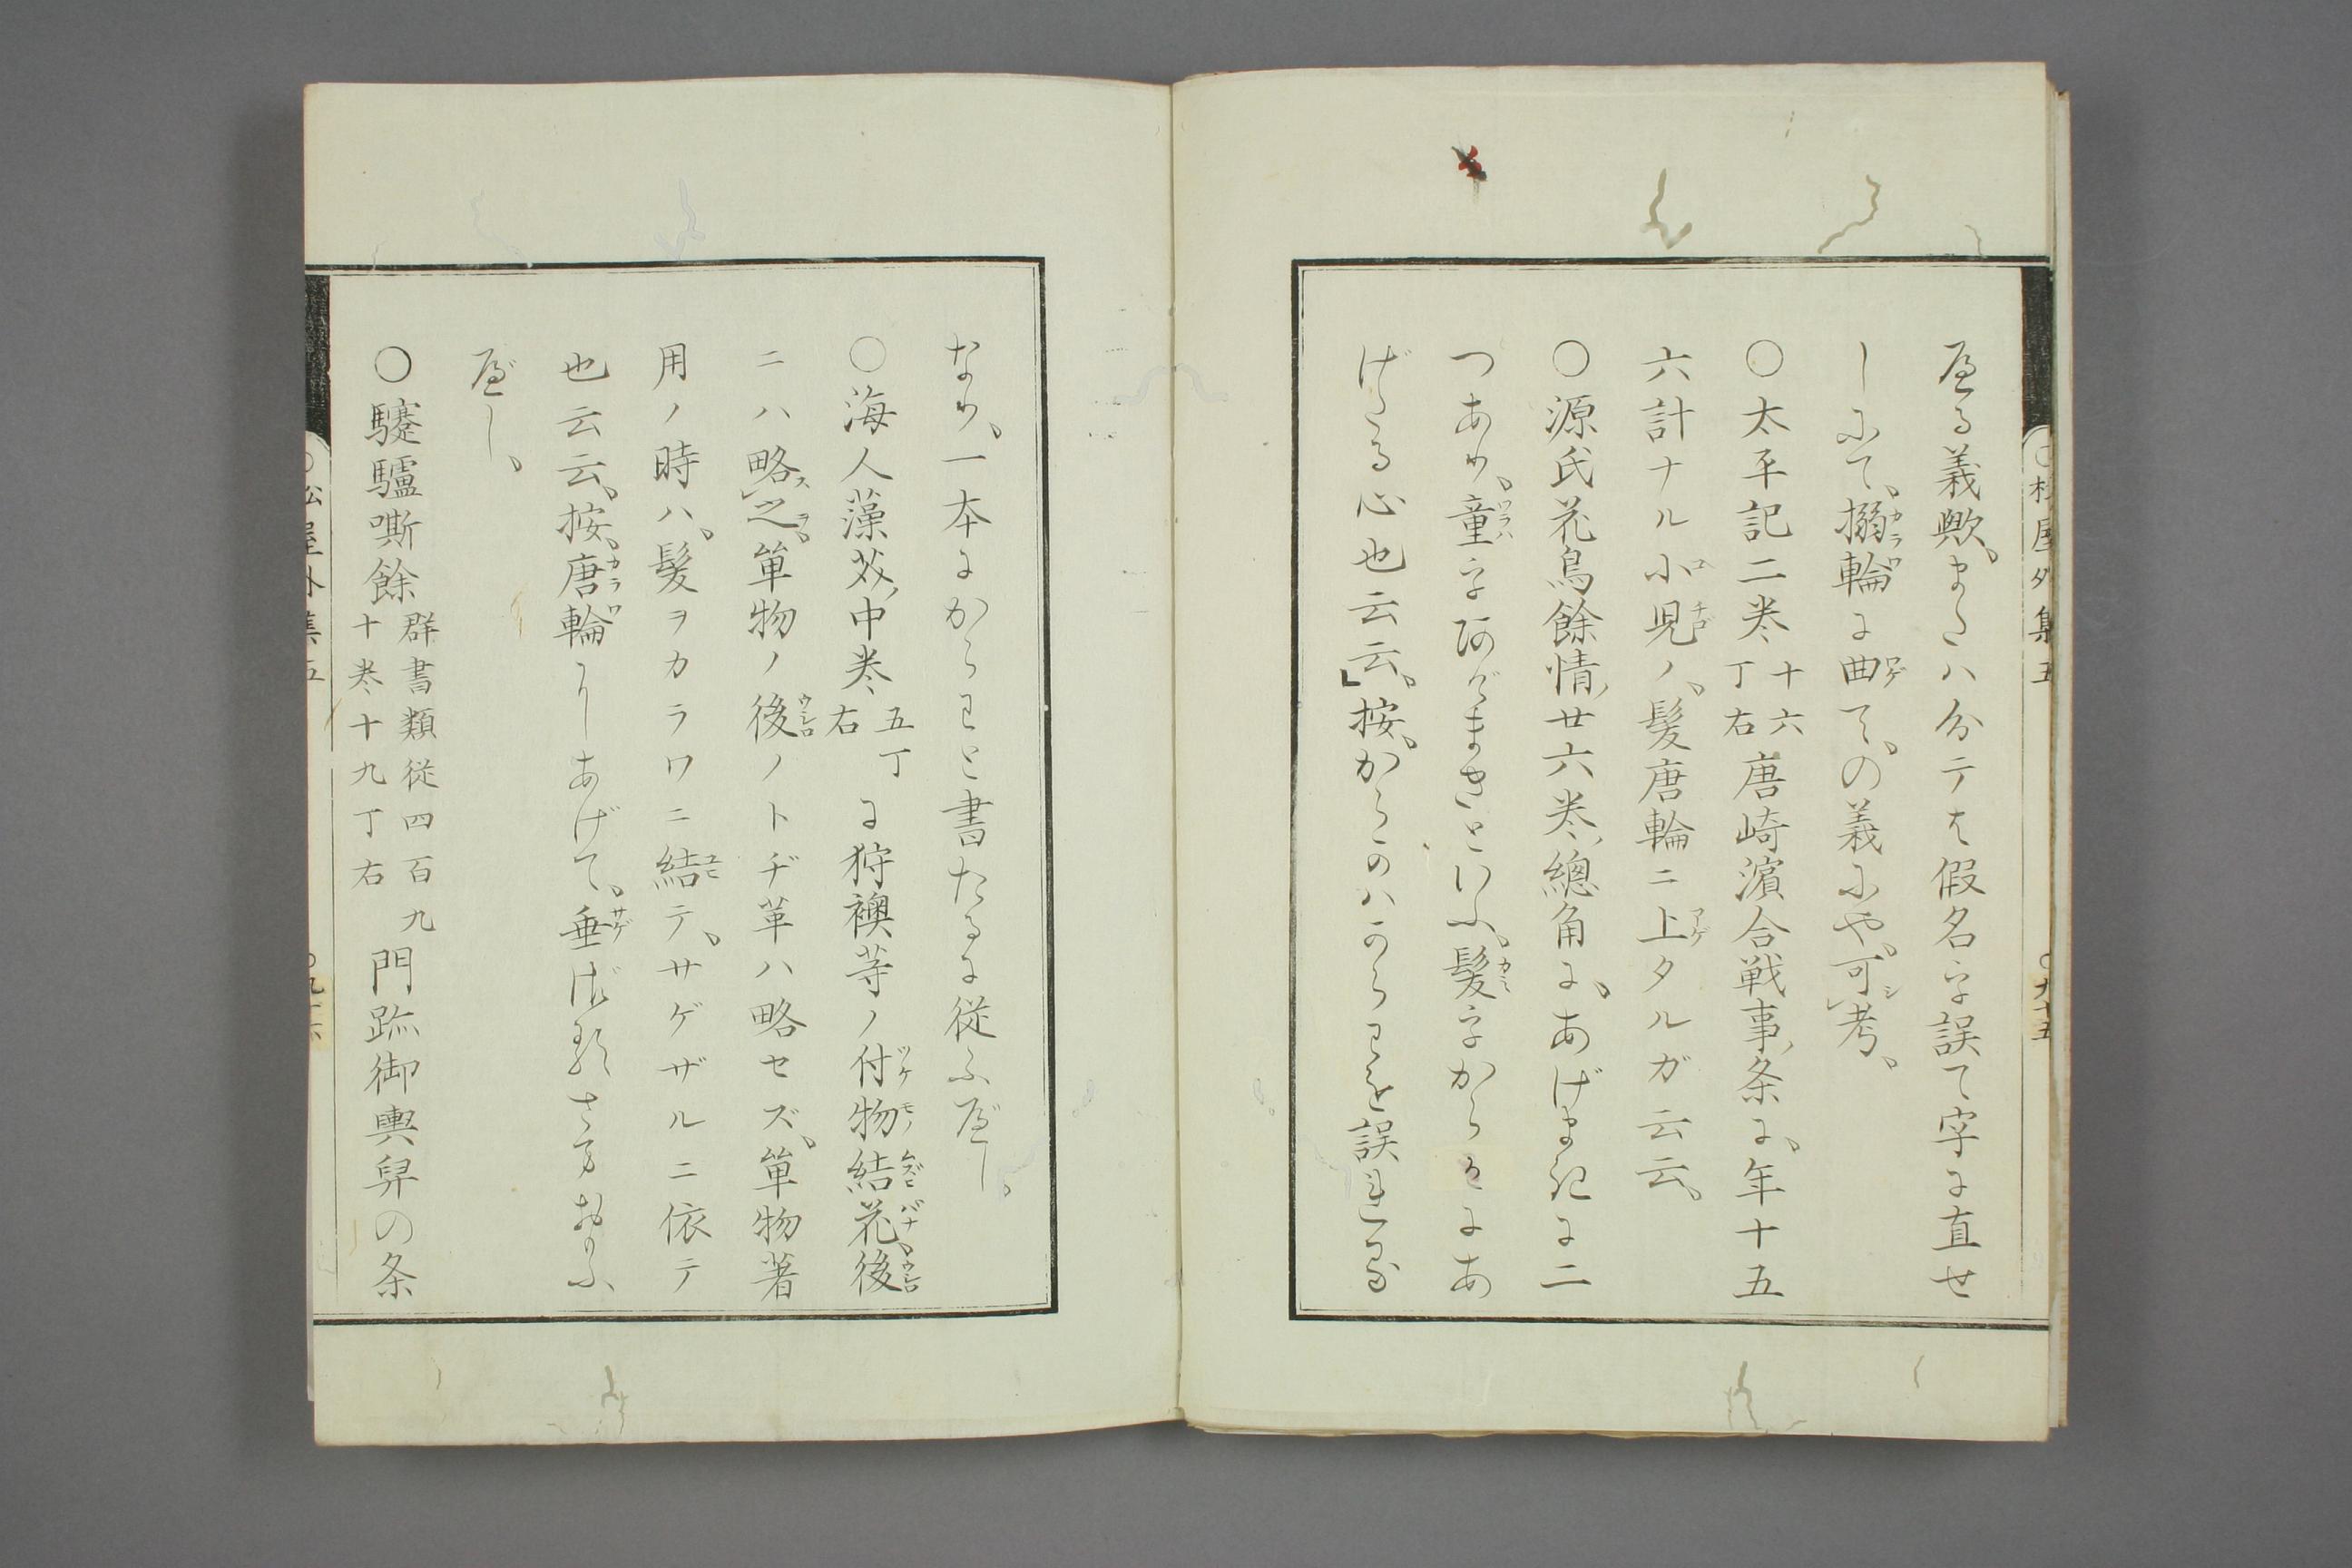 へる義歟、またハ分テを假名字誤て字に直せ
しにて、搦輪に曲て、の義にや、可考、
〇太平記二巻十六丁右唐崎濵合戦事条に、年十五
六計ナル小児ノ、髪唐輪ニ上タルガ云云、
〇源氏花鳥餘情、廿六巻、總角に、あげまきに二
つあり、童字アゲまきといふ、髪字からわにあ
げたる心也云云、按、からのハからわを誤れる
〇松屋外集五
〇九十五
なり、一本にからわと書たるに従ふべし、
〇海人藻芥、中巻五丁右に狩襖等ノ付物結花、後
ニハ略之、単物ノ後ノトヂ革ハ略セズ、単物著
用ノ時ハ、髪ヲカラワニ結テ、サゲザルニ依テ
也云云、按、唐輪にしあげて、垂ざるさまおもふ
べし、
〇驢嘶餘群書類従四百九十巻十九丁右門跡御輿舁の条
〇松屋外集五